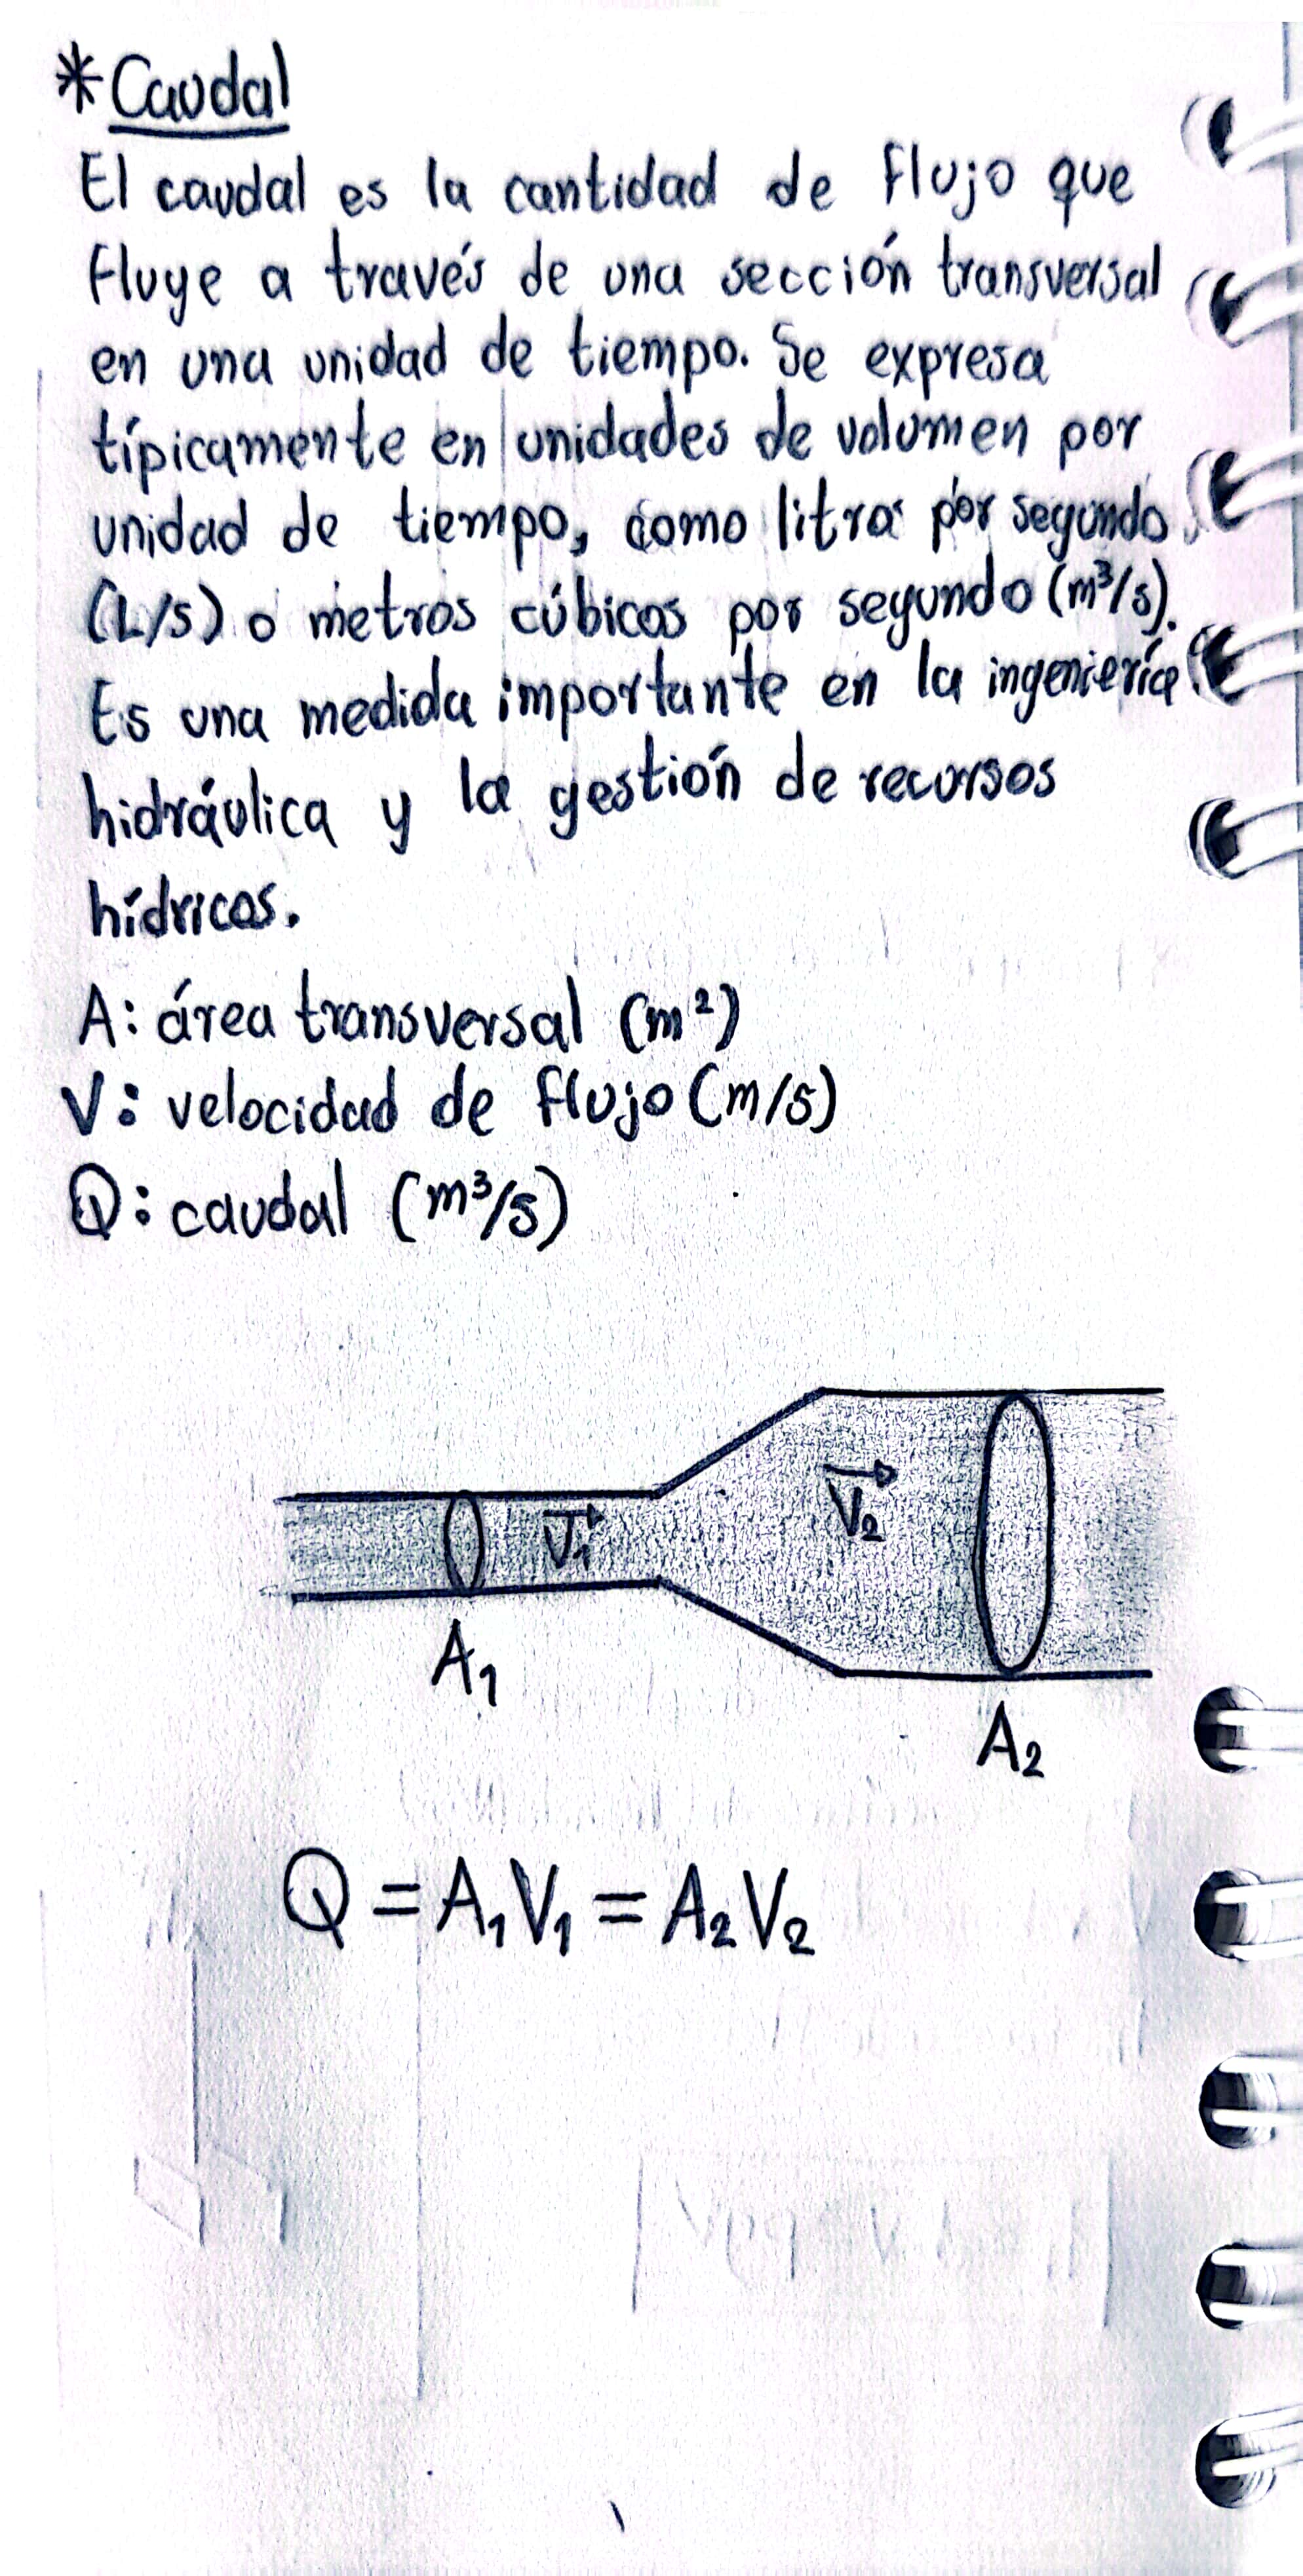 *Caudal
El caudal es la cantidad de flujo que
fluye a través de una sección transversal
en una unidad de tiempo. Se expresa
típicamente en unidades de volumen por
unidad de tiempo, como litros por segundo
(L/s) o metros cúbicos por segundo (m³/s).
Es una medida importante en la ingeniería
hidráulica y la gestión de recursos
hídricos.
A: área transversal (m²)
V: velocidad de flujo (m/s)
Q: caudal (m³/s)
V₁
V₂
A₁
A₂
Q = A₁V₁ = A₂V₂